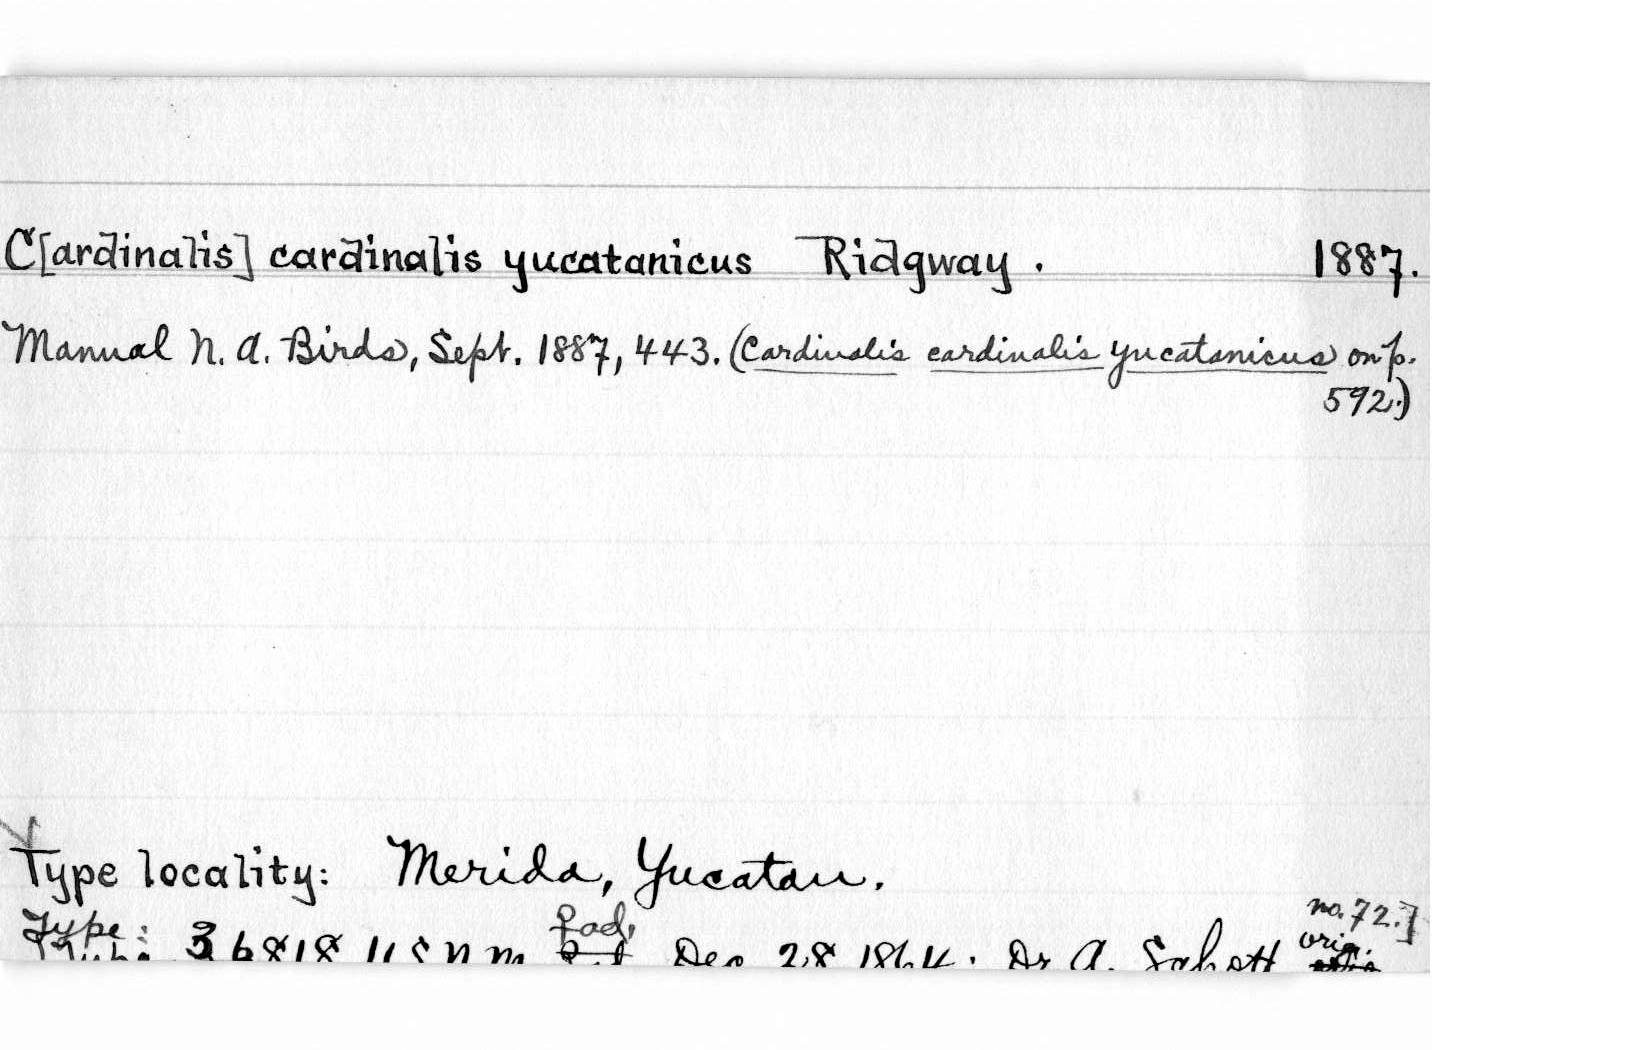 C[ardinalis] cardinalis yucatanicus Ridgway. 1887.
Manual N. A. Birds, Sept. 1887, 443. (Cardinalis cardinalis yucatanicus on p.
592.)
Type locality: Merida, Yucatan.
no. 72.]
Type: ♀ ad, orig.
36818 U S N M Dec 28 1864. Dr A. Schott